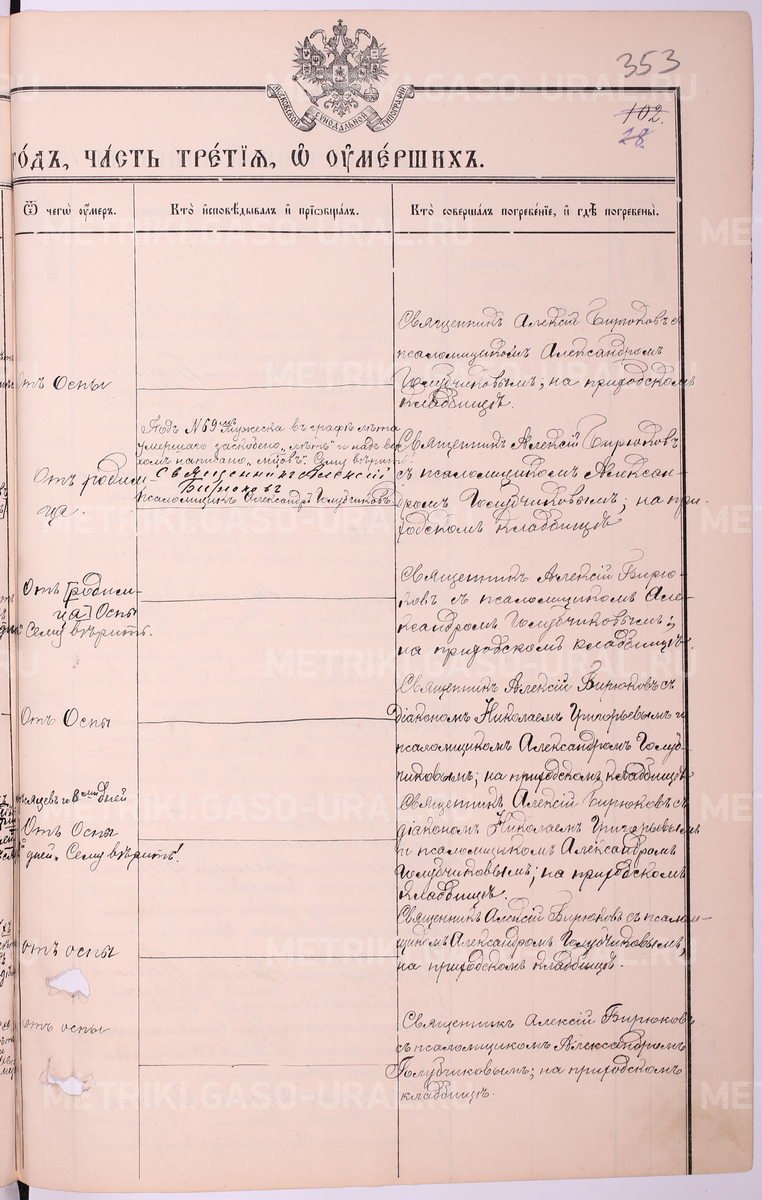 МОСКОВСКОЙ СѴНОДАЛЬНОЙ ТИПОГРАФІИ
353
102.
28.
ГО́ДЪ, ЧА́СТЬ ТРЕ́ТЇѦ, Ѽ ОУ҆МЕ́РШИХЪ.
Ѿ чегѡ̀ оу҆́меръ.
Кто̀ и҆сповѣ́дывалъ и҆ прїѡбща́лъ.
Кто̀ соверша́лъ погребе́нїе, и҆ гдѣ̀ погребены̀.
Отъ Оспы
Священникъ Алексій Бирюковъ съ
псаломщикомъ Александромъ
Голубчиковымъ; на приходскомъ
кладбищѣ.
Отъ родим-
ца.
Подъ № 69мъ Мужеска въ графѣ лѣта
умершаго заскоблено „лѣтъ" и надъ вер
хомъ написано „мцовъ". Сему вѣрить:
Священникъ Алексій
Бирюковъ
Псаломщикъ Александръ Голубчиковъ
Священникъ Алексій Бирюковъ
съ псаломщикомъ Алексан-
дромъ Голубчиковымъ; на при-
ходскомъ кладбищѣ
Отъ [родим-
ца] Оспы
Сему вѣрить.
Священникъ Алексій Бирю-
ковъ съ псаломщикомъ Але-
ксандромъ Голубчиковымъ;
на приходскомъ кладбищѣ.
Отъ Оспы
Священникъ Алексій Бирюковъ съ
діакономъ Николаемъ Григорьевымъ и
псаломщикомъ Александромъ Голуб-
чиковымъ; на приходскомъ кладбищѣ
мѣсяцевъ и 8ми дней
Отъ Оспы
дней. Сему вѣрить!
Священникъ Алексій Бирюковъ съ
діакономъ Николаемъ Григорьевымъ
и псаломщикомъ Александромъ
Голубчиковымъ; на приходскомъ
кладбищѣ.
отъ оспы
Священникъ Алексій Бирюковъ съ псалом-
щикомъ Александромъ Голубчиковымъ;
на приходскомъ кладбищѣ.
отъ оспы
Священникъ Алексій Бирюковъ
съ псаломщикомъ Александромъ
Голубчиковымъ; на приходскомъ
кладбищѣ.
METRIKI.GASO-URAL.RU